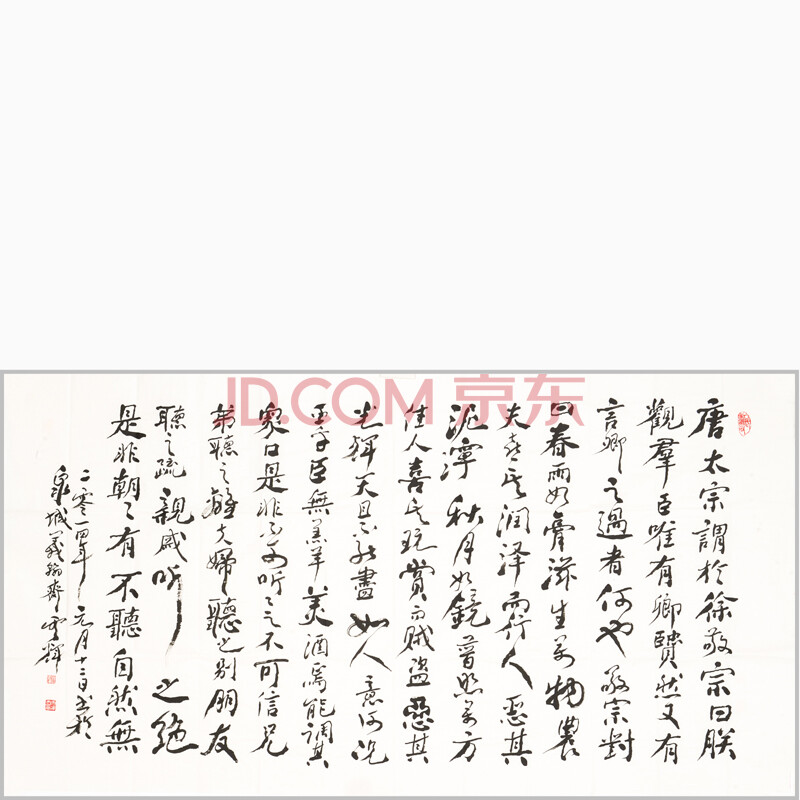 JD.COM 京东
唐太宗謂於徐敬宗曰朕
觀羣臣唯有卿賢然又有
言卿之過者何也敬宗對
曰春雨如膏滋生万物農
夫喜其润泽而行人惡其
泥濘秋月如鏡普照万方
佳人喜其玩赏而贼盗惡其
光辉天且不能盡如人意何况
王子臣無羔羊美酒焉能調其
眾口是非不可听之不可信兄
弟聽之離夫婦聽之别朋友
聽之疏親戚听之绝
是非朝朝有不聽自然無
二零一四年元月十三日书於
泉城